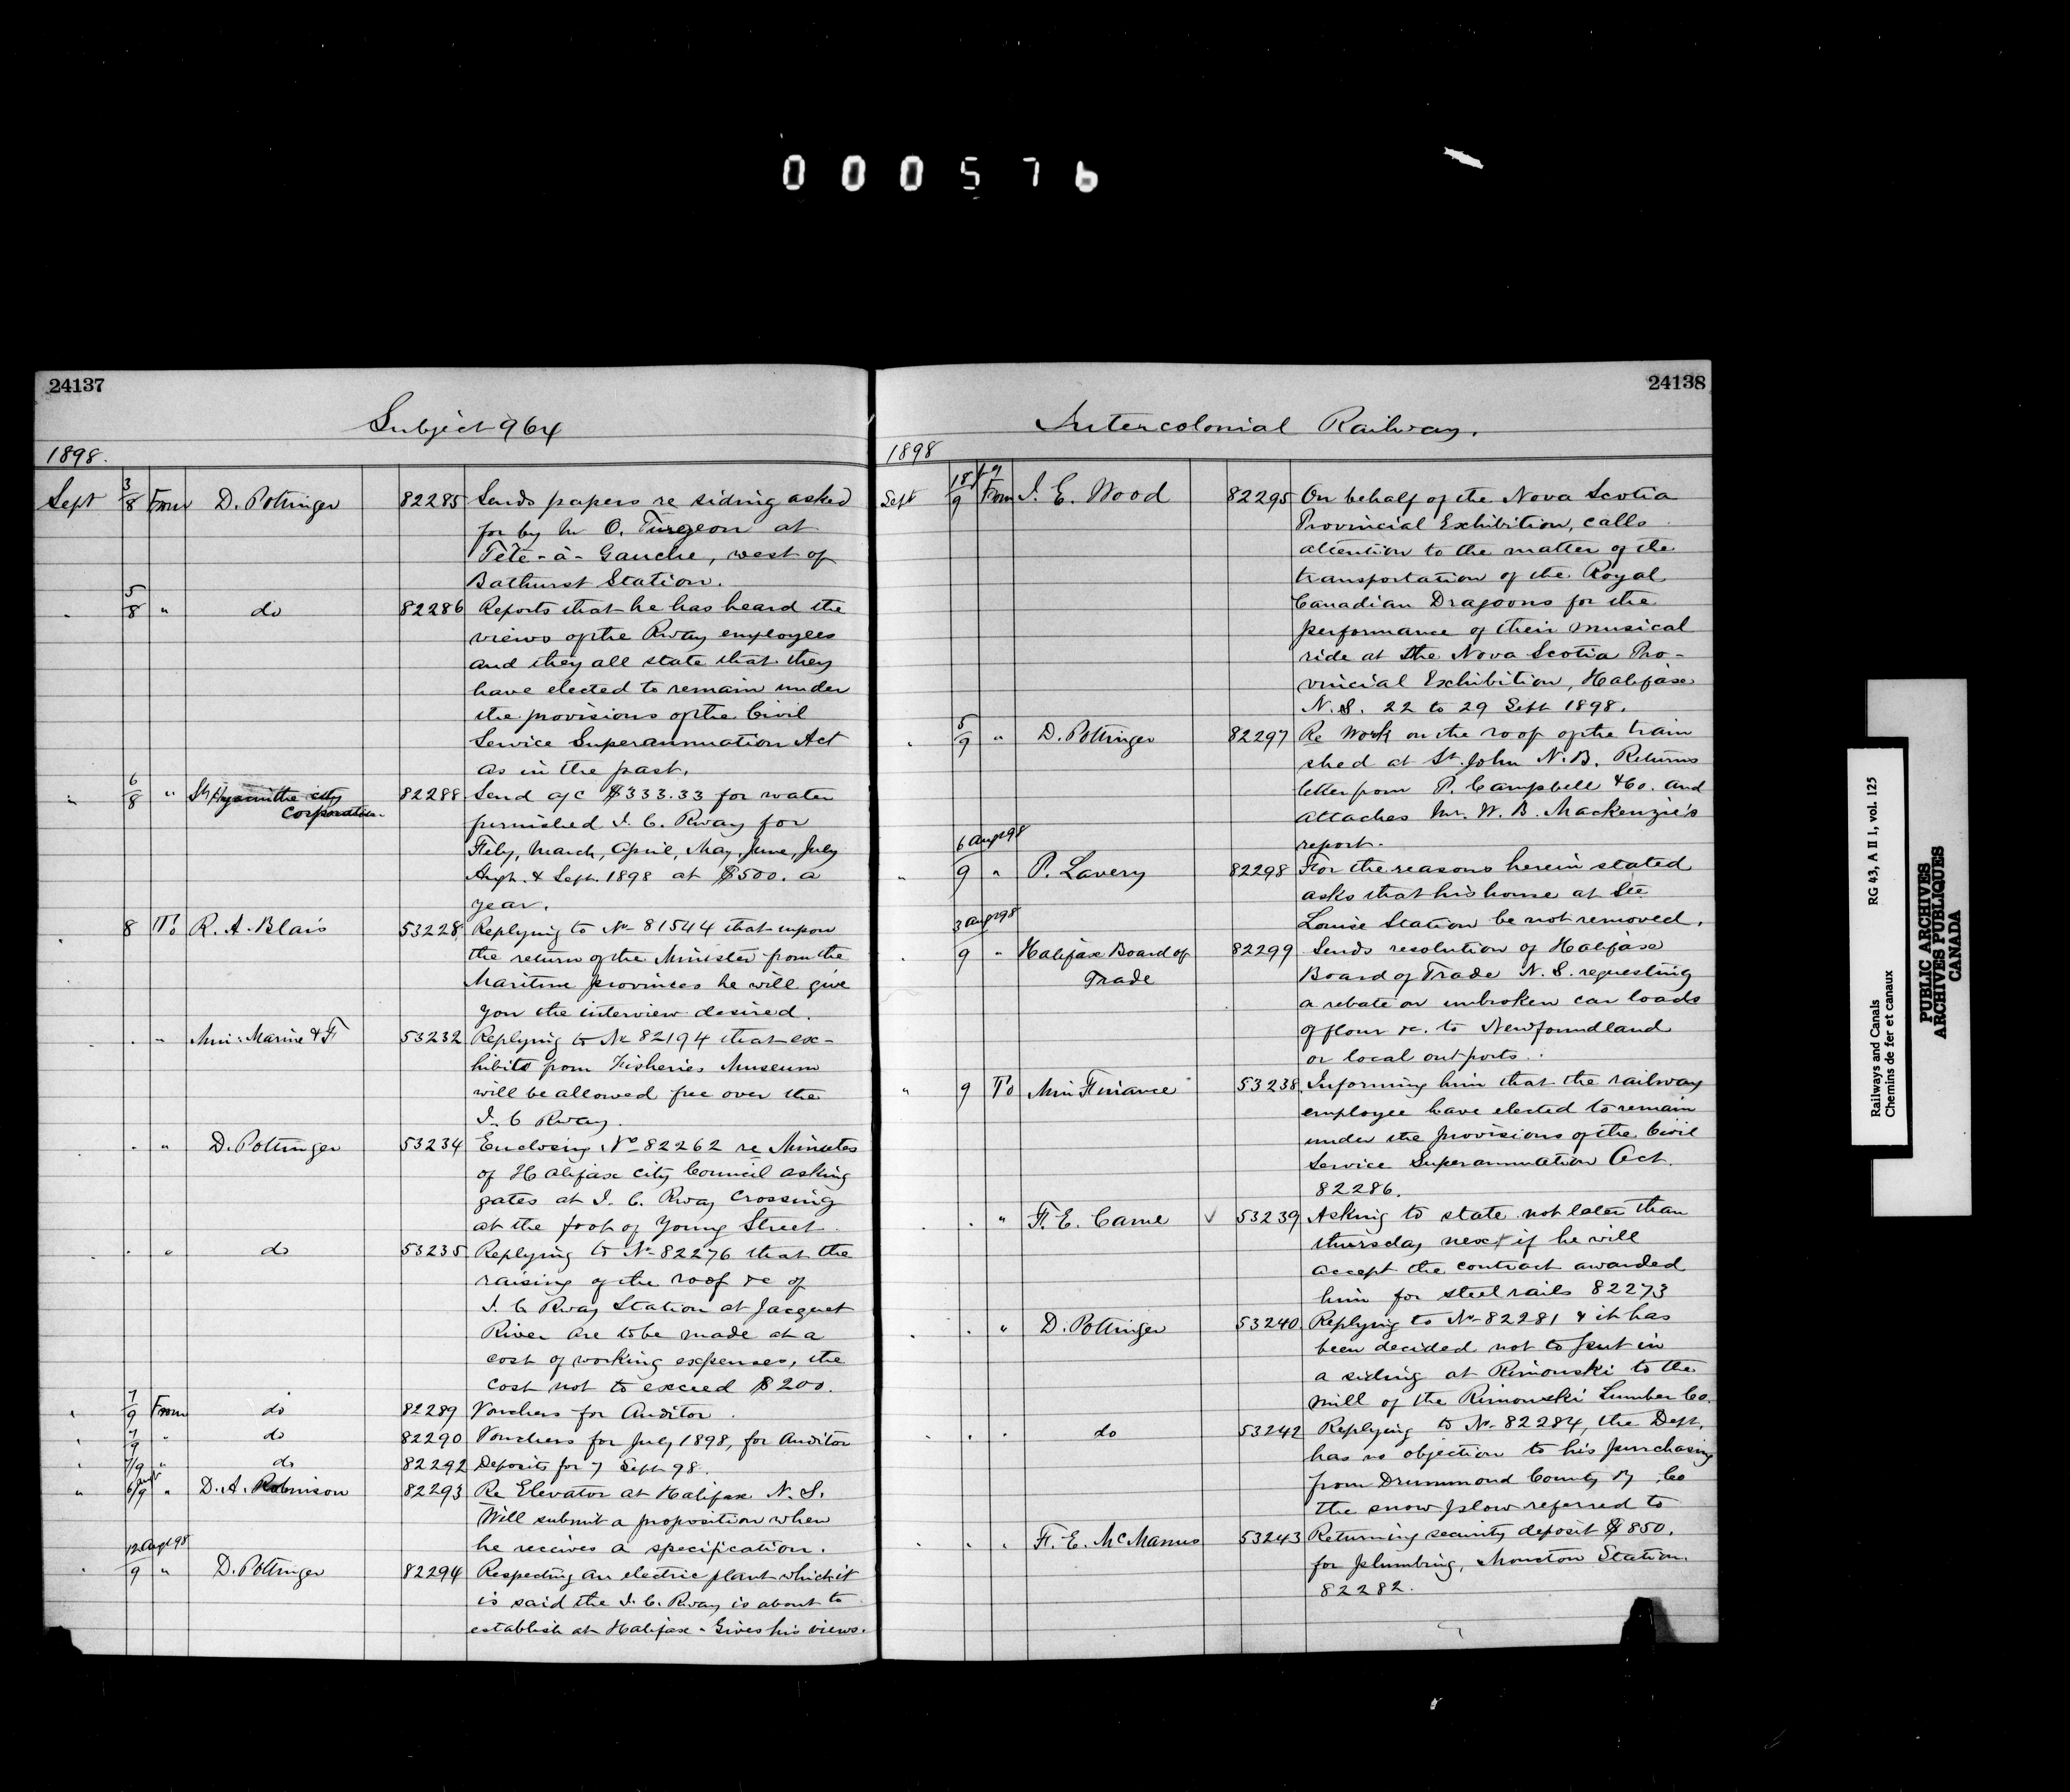 000576
24137
Subject 964
1898.
Sept 3/8 From D. Pottinger 82285 Sends papers re siding asked
for by Mr O. Turgeon at
Tête-à-Gauche, west of
Bathurst Station.
" 5/8 " do 82286 Reports that he has heard the
views of the Rway employees
and they all state that they
have elected to remain under
the provisions of the Civil
Service Superannuation Act
as in the past.
" 6/8 " St Hyacinthe city 82288 Send a/c $333.33 for water
Corporation furnished I. C. Rway for
Feby, March, April, May, June, July
Augt. & Sept. 1898 at $500. a
year.
" 8 To R. A. Blais 53228 Replying to No 81544 that upon
the return of the Minister from the
Maritime provinces he will give
you the interview desired.
" " " Min: Marine & F 53232 Replying to No 82194 that ex-
hibits from Fisheries Museum
will be allowed free over the
I. C Rway.
" " " D. Pottinger 53234 Enclosing No 82262 re Minutes
of Halifax City Council asking
gates at I. C. Rway Crossing
at the foot of Young Street.
" " " do 53235 Replying to No 82276 that the
raising of the roof &c of
I. C Rway Station at Jacquet
River are to be made at a
cost of working expenses, the
cost not to exceed $200.
" 7/9 From do 82289 Vouchers for Auditor.
" 7/9 " do 82290 Vouchers for July 1898, for Auditor
" 7/9 " do 82292 Deposits for 7 Sept 98.
" 6/9 " D. A. Robinson 82293 Re Elevator at Halifax N. S.
Will submit a proposition when
he receives a specification.
12 Augt 98
" 9 " D. Pottinger 82294 Respecting an electric plant which it
is said the I. C. Rway is about to
establish at Halifax - Gives his views.
24138
Intercolonial Railway.
1898
Sept 9 From J. E. Wood 82295 On behalf of the Nova Scotia
Provincial Exhibition, calls
attention to the matter of the
transportation of the Royal
Canadian Dragoons for the
performance of their musical
ride at the Nova Scotia Pro-
vincial Exhibition, Halifax
N. S. 22 to 29 Sept 1898.
" 5/9 " D. Pottinger 82297 Re Work on the roof of the train
shed at St. John N. B. Returns
letter from P. Campbell & Co. and
attaches Mr. W. B. Mackenzie's
report.
6 Augt 98
" 9 " P. Lavery 82298 For the reasons herein stated
asks that his home at Ste
Louise Station be not removed.
3 Augt 98
" 9 " Halifax Board of 82299 Sends resolution of Halifax
Trade Board of Trade N. S. requesting
a rebate on unbroken car loads
of flour &c. to Newfoundland
or local outports.
" 9 To Min Finance 53238 Informing him that the railway
employee have elected to remain
under the provisions of the Civil
Service Superannuation Act.
82286.
" " " F. E. Came √ 53239 Asking to state not later than
thursday next if he will
accept the contract awarded
him for steel rails 82273
" " " D. Pottinger 53240 Replying to No 82281 & it has
been decided not to put in
a siding at Rimouski to the
mill of the Rimouski Lumber Co.
" " " do 53242 Replying to No 82284, the Dept.
has no objection to his purchasing
from Drummond County Ry Co
the snow plow referred to
" " " F. E. McManus 53243 Returning security deposit $850.
for plumbing, Moncton Station.
82282.
Railways and Canals RG 43, A II 1, vol. 125
Chemins de fer et canaux
PUBLIC ARCHIVES
ARCHIVES PUBLIQUES
CANADA